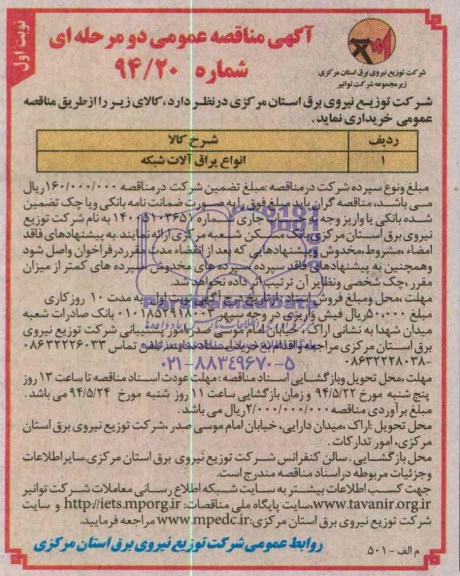 نوبت اول
آگهی مناقصه عمومی دو مرحله ای
شماره ۹۴/۲۰
شرکت توزیع نیروی برق استان مرکزی
زیرمجموعه شرکت توانیر
شرکت توزیع نیروی برق استان مرکزی درنظر دارد، کالای زیر را از طریق مناقصه
عمومی خریداری نماید.
ردیف شرح کالا
۱ انواع یراق آلات شبکه
مبلغ ونوع سپرده شرکت درمناقصه :مبلغ تضمین شرکت در مناقصه ۱۶۰/۰۰۰/۰۰۰ ریال
می باشد، مناقصه گران باید مبلغ فوق را به صورت ضمانت نامه بانکی ویا چک تضمین
شده بانکی یا واریز وجه به جاری شماره به نام شرکت توزیع
نیروی برق استان مرکزی بانک مسکن شعبه مرکزی ارائه نمایند. به پیشنهادهای فاقد
امضاء ،مشروط،مخدوش و پیشنهادهایی که بعد از انقضاء مدت مقرر در فراخوان واصل شود
وهمچنین به پیشنهادهای فاقد سپرده سپرده های مخدوش سپرده های کمتر از میزان
مقرر،چک شخصی ونظایر آن ترتیب اثر داده نخواهد شد.
مهلت، محل ومبلغ فروش اسناد :از تاریخ درج آگهی نوبت اول به مدت ۱۰ روز کاری
مبلغ ۵۰۰/۰۰۰ریال فیش واریزی در وجه سپهر ۰۱۰۱۸۵۲۹۱۸۰۰۳ بانک صادرات شعبه
میدان شهدا به نشانی اراک، خیابان امام موسی صدر،امور پشتیبانی شرکت توزیع نیروی
برق استان مرکزی مراجعه واقدام به خرید اسناد تلفن تماس ۰۸۶۳۲۲۲۶۰۳۳
۰۸۶۳۲۲۲۸۰۳۸-
۰۲۱-۸۸۳۴۹۶۷۰-۵
مهلت، محل تحویل وبازگشایی اسناد مناقصه :مهلت عودت اسناد مناقصه تا ساعت ۱۳ روز
پنج شنبه مورخ ۹۴/۵/۲۲ و زمان بازگشایی ساعت ۱۱ روز شنبه مورخ ۹۴/۵/۲۴ می باشد.
مبلغ برآوردی مناقصه ۲/۰۰۰/۰۰۰/۰۰۰ریال می باشد.
محل تحویل :اراک ،میدان دارایی، خیابان امام موسی صدر ،شرکت توزیع نیروی برق استان
مرکزی، امور تدارکات .
محل بازگشایی . سالن کنفرانس شرکت توزیع نیروی برق استان مرکزی.سایراطلاعات
وجزئیات مربوطه دراسناد مناقصه مندرج است.
جهت کسب اطلاعات بیشتر به سایت شبکه اطلاع رسانی معاملات شرکت توانیر
www.tavanir.org.ir،سایت پایگاه ملی مناقصات: http://iets.mporg.ir و سایت
شرکت توزیع نیروی برق استان مرکزی:www.mpedc.ir مراجعه فرمایید.
روابط عمومی شرکت توزیع نیروی برق استان مرکزی
م الف - ۵۰۱